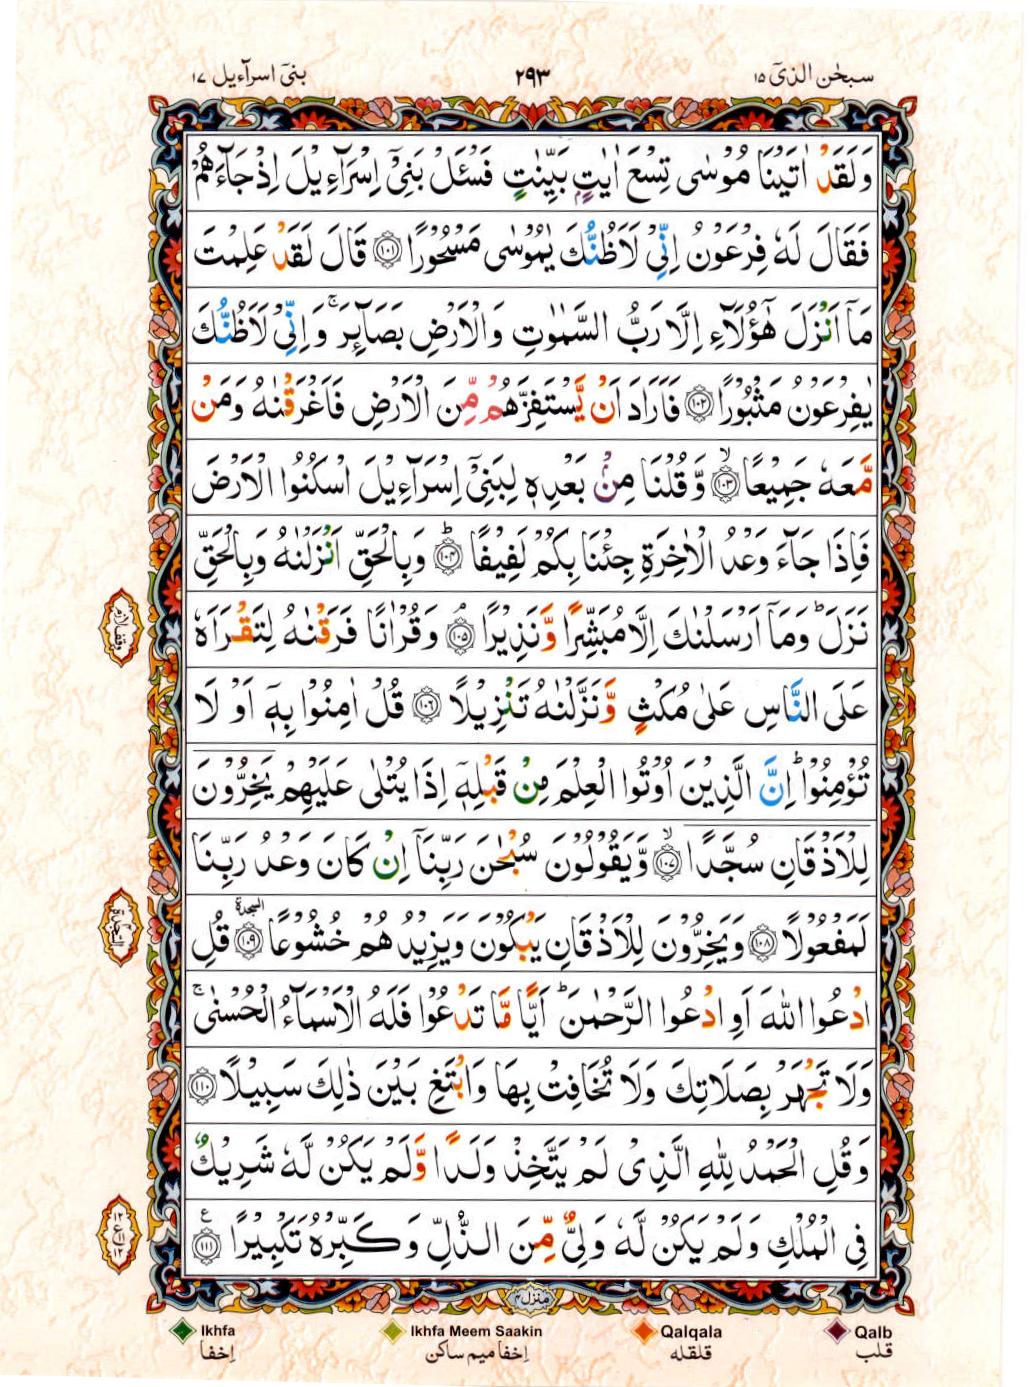 سبحٰن الذیٓ ۱۵
۲۹۳
بنیٓ اسرآءیل ۱۷
وَلَقَدْ اٰتَيْنَا مُوْسٰى تِسْعَ اٰيٰتٍۭ بَيِّنٰتٍ فَسْـَٔلْ بَنِىْٓ اِسْرَآءِيْلَ اِذْ جَآءَهُمْ
فَقَالَ لَهٗ فِرْعَوْنُ اِنِّىْ لَاَظُنُّكَ يٰمُوْسٰى مَسْحُوْرًا ۱۰۱ قَالَ لَقَدْ عَلِمْتَ
مَآ اَنْزَلَ هٰٓؤُلَآءِ اِلَّا رَبُّ السَّمٰوٰتِ وَالْاَرْضِ بَصَآئِرَ ۚ وَاِنِّىْ لَاَظُنُّكَ
يٰفِرْعَوْنُ مَثْبُوْرًا ۱۰۲ فَاَرَادَ اَنْ يَّسْتَفِزَّهُمْ مِّنَ الْاَرْضِ فَاَغْرَقْنٰهُ وَمَنْ
مَّعَهٗ جَمِيْعًا ۙ ۱۰۳ وَّقُلْنَا مِنْۢ بَعْدِهٖ لِبَنِىْٓ اِسْرَآءِيْلَ اسْكُنُوا الْاَرْضَ
فَاِذَا جَآءَ وَعْدُ الْاٰخِرَةِ جِئْنَا بِكُمْ لَفِيْفًا ؕ ۱۰۴ وَبِالْحَقِّ اَنْزَلْنٰهُ وَبِالْحَقِّ
نَزَلَ ؕ وَمَآ اَرْسَلْنٰكَ اِلَّا مُبَشِّرًا وَّنَذِيْرًا ۘ ۱۰۵ وَقُرْاٰنًا فَرَقْنٰهُ لِتَقْرَاَهٗ
وقف لازم
عَلَى النَّاسِ عَلٰى مُكْثٍ وَّنَزَّلْنٰهُ تَنْزِيْلًا ۱۰۶ قُلْ اٰمِنُوْا بِهٖٓ اَوْ لَا
تُؤْمِنُوْا ؕ اِنَّ الَّذِيْنَ اُوْتُوا الْعِلْمَ مِنْ قَبْلِهٖٓ اِذَا يُتْلٰى عَلَيْهِمْ يَخِرُّوْنَ
لِلْاَذْقَانِ سُجَّدًا ۙ ۱۰۷ وَّيَقُوْلُوْنَ سُبْحٰنَ رَبِّنَآ اِنْ كَانَ وَعْدُ رَبِّنَا
لَمَفْعُوْلًا ۱۰۸ وَيَخِرُّوْنَ لِلْاَذْقَانِ يَبْكُوْنَ وَيَزِيْدُهُمْ خُشُوْعًا ۱۰۹ السجدة قُلِ
السجدة
ادْعُوا اللّٰهَ اَوِ ادْعُوا الرَّحْمٰنَ ؕ اَيًّا مَّا تَدْعُوْا فَلَهُ الْاَسْمَآءُ الْحُسْنٰى ۚ
وَلَا تَجْهَرْ بِصَلَاتِكَ وَلَا تُخَافِتْ بِهَا وَابْتَغِ بَيْنَ ذٰلِكَ سَبِيْلًا ۱۱۰
وَقُلِ الْحَمْدُ لِلّٰهِ الَّذِىْ لَمْ يَتَّخِذْ وَلَدًا وَّلَمْ يَكُنْ لَّهٗ شَرِيْكٌ
فِى الْمُلْكِ وَلَمْ يَكُنْ لَّهٗ وَلِىٌّ مِّنَ الذُّلِّ وَكَبِّرْهُ تَكْبِيْرًا ع ۱۱۱
۱۲
ع ۱۱
۱۲
منزل ۴
Ikhfa
اِخفا
Ikhfa Meem Saakin
اِخفا میم ساکن
Qalqala
قلقله
Qalb
قلب